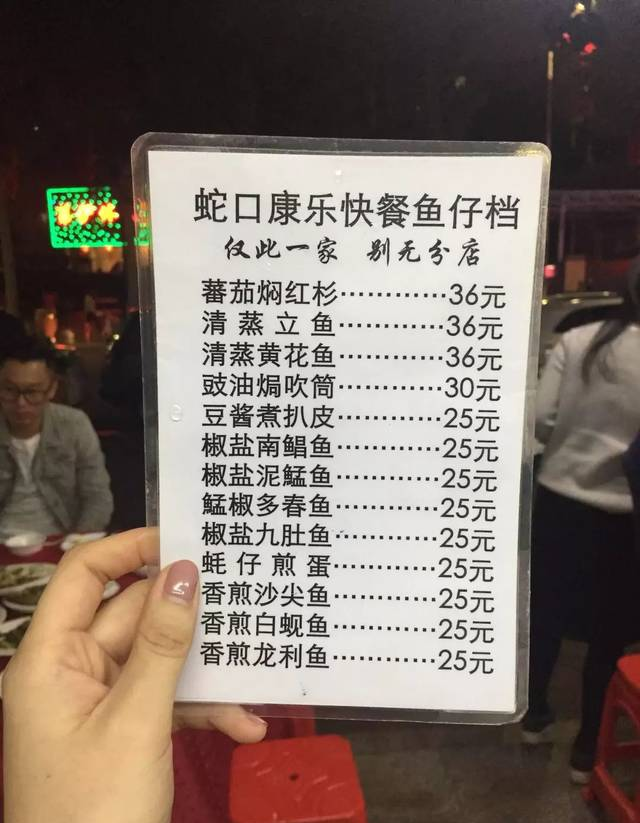 蛇口康乐快餐鱼仔档
仅此一家 别无分店
蕃茄焖红杉············36元
清蒸立鱼············36元
清蒸黄花鱼············36元
豉油焗吹筒············30元
豆酱煮扒皮············25元
椒盐南鲳鱼············25元
椒盐泥鯭鱼············25元
鯭椒多春鱼············25元
椒盐九肚鱼············25元
蚝仔煎蛋············25元
香煎沙尖鱼············25元
香煎白蚬鱼············25元
香煎龙利鱼············25元